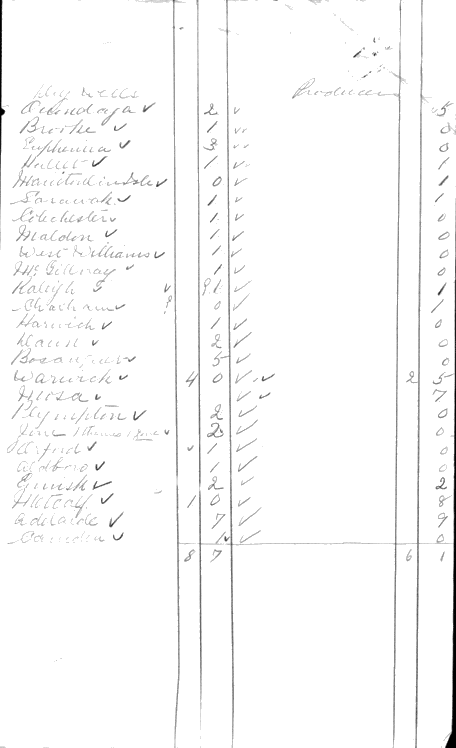 Dry Wells Producer
Onondaga ✓ 2 ✓ 5
Brooke ✓ 1 ✓✓ 0
Euphemia ✓ 3 ✓✓ 0
Hallet ✓ 1 ✓ 1
Manitoulin Isle ✓ 0 ✓ 1
Sarawak ✓ 1 ✓ 1
Colchester ✓ 1 ✓ 0
Maldon ✓ 1 ✓ 0
West Williams ✓ 1 ✓ 0
Mc Gillvray ✓ 1 ✓ 0
Raleigh 5 ✓ 1 ✓ 1
Chatham ✓ ? 0 ✓ 1
Harwich ✓ 1 ✓ 0
Dawn ✓ 2 ✓ 0
Bosanquet ✓ 5 ✓ 0
Warwick ✓ 4 0 ✓ ✓✓ 2 5
Mosa ✓ ✓ ✓ 7
Plympton ✓ 2 ✓ 0
✓ 2 ✓ 0
Orford ✓ ✓ 1 ✓ 0
Aldboro ✓ 1 ✓ 0
2 ✓ 2
Metcalf ✓ 1 0 ✓ 8
Adelaide ✓ 7 ✓ 9
Camden ✓ 1 ✓ ✓ 0
8 7 6 1